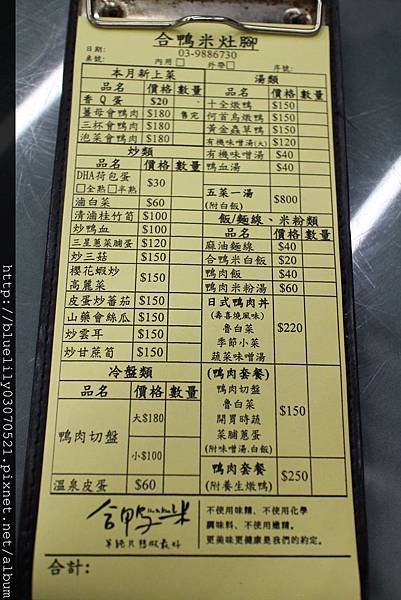 合鴨米灶腳
03-9886730
日期:
桌號:
內用□ 外帶□
序號:
本月新上菜
品名 價格 數量
香Q蛋 $20
薑母會鴨肉 $180 售完
三杯會鴨肉 $180
泡菜會鴨肉 $180
炒類
品名 價格 數量
DHA荷包蛋
□全熟□半熟 $30
滷白菜 $60
清滷桂竹筍 $100
炒鴨血 $100
三星蔥菜脯蛋 $120
炒三菇 $150
櫻花蝦炒
高麗菜 $150
皮蛋炒蕃茄 $150
山藥會絲瓜 $150
炒雲耳 $150
炒甘蔗筍 $150
冷盤類
品名 價格 數量
鴨肉切盤 大$180
小$100
溫泉皮蛋 $60
湯類
品名 價格 數量
十全燉鴨 $150
何首烏燉鴨 $150
黃金蟲草鴨 $150
有機味噌湯(大) $120
有機味噌湯 $40
鴨血湯 $40
五菜一湯
(附白飯) $800
飯/麵線、米粉類
品名 價格 數量
麻油麵線 $40
合鴨米白飯 $20
鴨肉飯 $40
鴨肉米粉湯 $60
日式鴨肉丼
(壽喜燒風味)
魯白菜
季節小菜
蔬菜味噌湯 $220
(鴨肉套餐)
鴨肉切盤
魯白菜
開胃時蔬
菜脯蔥蛋
(附味噌湯.白飯) $150
鴨肉套餐
(附養生燉鴨) $250
合鴨米
不使用味精、不使用化學
調味料、不使用嫩精。
更美味更健康是我們的約定。
合計:
http://bluelily03070521.pixnet.net/album